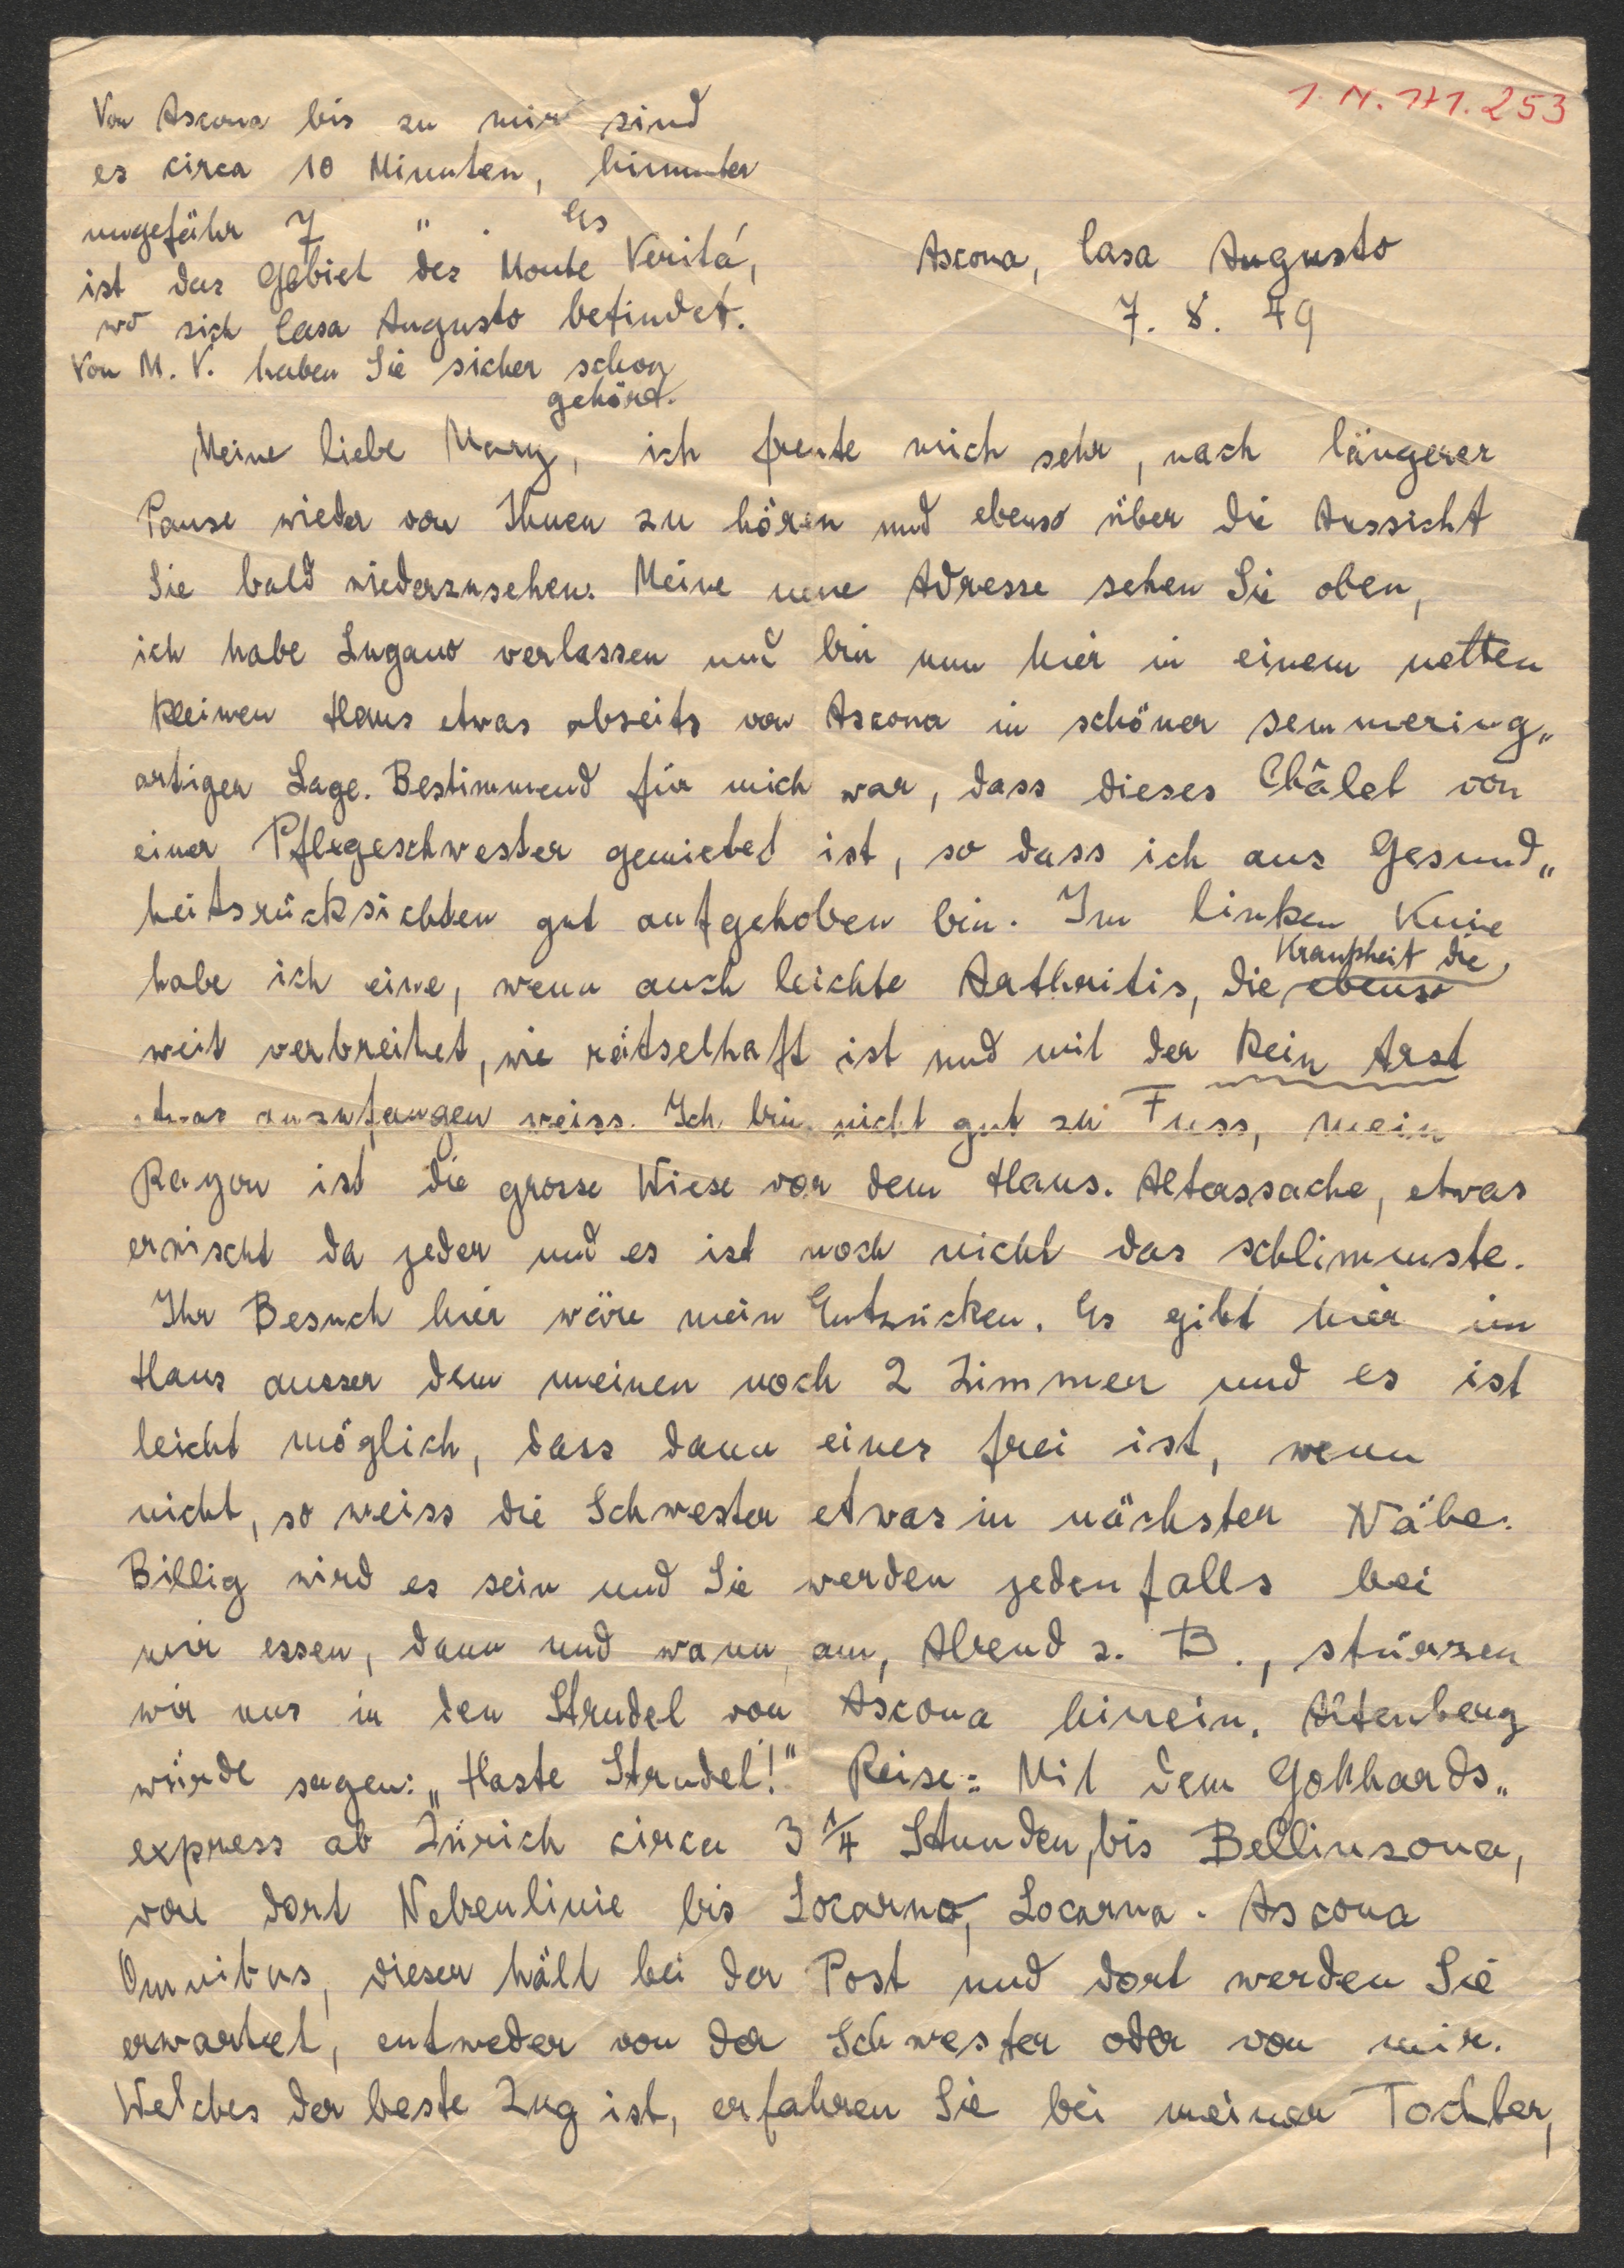 1. N. 171.253
Von Ascona bis zu mir sind
es circa 10 Minuten, hinunter
ungefähr 7 " . Es
ist das Gebiet des Monte Veritá,
wo sich Casa Augusto befindet.
Von M. V. haben Sie sicher schon
gehört.
Ascona, Casa Augusto
7. 8. 49
Meine liebe Mary, ich freute mich sehr, nach längerer
Pause wieder von Ihnen zu hören und ebenso über die Aussicht
Sie bald wiederzusehen. Meine neue Adresse sehen Sie oben,
ich habe Lugano verlassen und bin nun hier in einem netten
kleinen Haus etwas abseits von Ascona in schöner semmering„
artiger Lage. Bestimmend für mich war, dass dieses Châlet von
einer Pflegeschwester gemietet ist, so dass ich aus Gesund„
heitsrücksichten gut aufgehoben bin. Im linken Knie
habe ich eine, wenn auch leichte Arthritis, die ebenso Krankheit die,
weit verbreitet, wie rätselhaft ist und mit der kein Arzt
etwas anzufangen weiss. Ich bin nicht gut zu Fuss, mein
Rayon ist die grosse Wiese vor dem Haus. Alterssache, etwas
erwischt da jeder und es ist noch nicht das schlimmste.
Ihr Besuch hier wäre mein Entzücken. Es gibt hier im
Haus ausser dem meinen noch 2 Zimmer und es ist
leicht möglich, dass dann eines frei ist, wenn
nicht, so weiss die Schwester etwas in nächster Nähe.
Billig wird es sein und Sie werden jedenfalls bei
mir essen, dann und wann, am Abend z. B., stürzen
wir uns in den Strudel von Ascona hinein. Altenberg
würde sagen: „Haste Strudel!" Reise: Mit dem Gotthards„
express ab Zürich circa 3 1/4 Stunden, bis Bellinzona,
von dort Nebenlinie bis Locarno, Locarno - Ascona
Omnibus, dieser hält bei der Post und dort werden Sie
erwartet, entweder von der Schwester oder von mir.
Welches der beste Zug ist, erfahren Sie bei meiner Tochter,